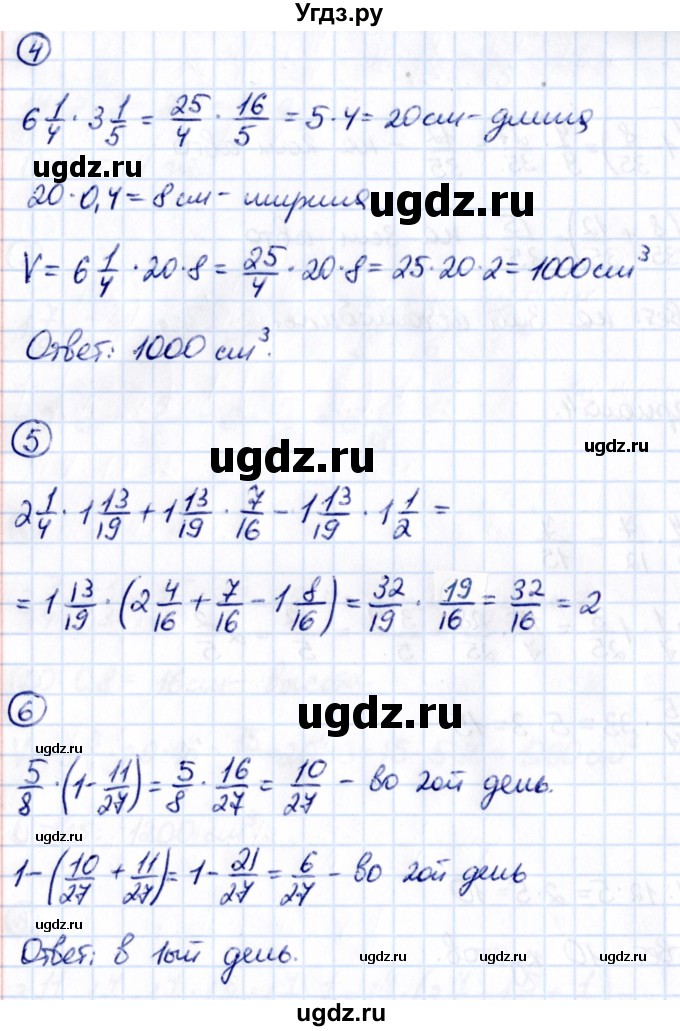 Угдз.ру
4
6 1/4 · 3 1/5 = 25/4 · 16/5 = 5 · 4 = 20 см - длина
ugdz.ru
ugdz.ru
20 · 0,4 = 8 см - ширина
V = 6 1/4 · 20 · 8 = 25/4 · 20 · 8 = 25 · 20 · 2 = 1000 см³
Ответ: 1000 см³.
5
ugdz.ru
ugdz.ru
2 1/4 · 1 13/19 + 1 13/19 · 7/16 - 1 13/19 · 1 1/2 =
ugdz.ru
= 1 13/19 · (2 4/16 + 7/16 - 1 8/16) = 32/19 · 19/16 = 32/16 = 2
6
ugdz.ru
ugdz.ru
5/8 · (1 - 11/27) = 5/8 · 16/27 = 10/27 - во 2ой день.
ugdz.ru
1 - (10/27 + 11/27) = 1 - 21/27 = 6/27 - во 2ой день
ugdz.ru
Ответ: в 1ый день.
ugdz.ru
ugdz.ru
ugdz.ru
ugdz.ru